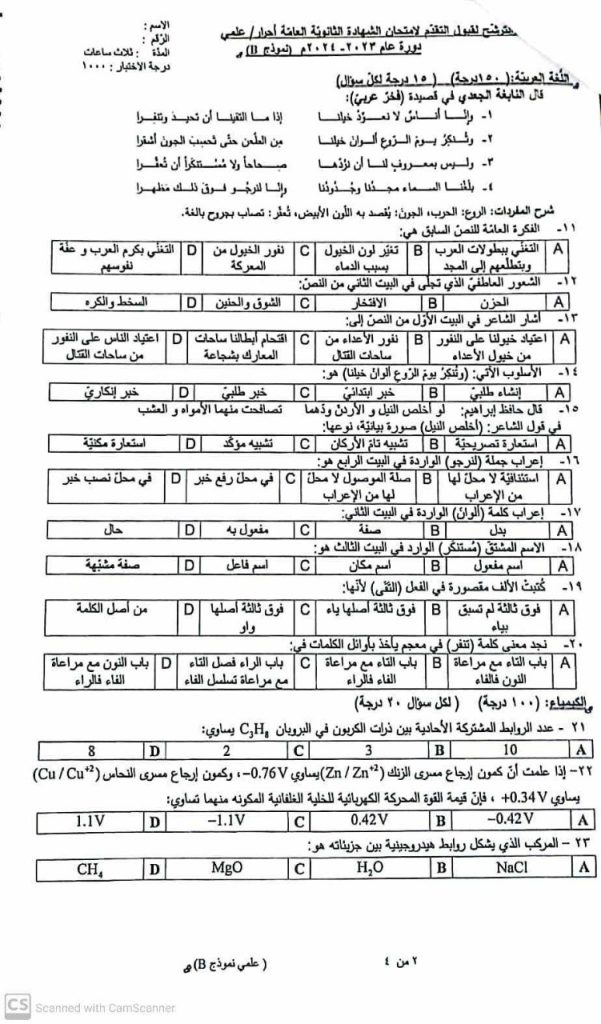 الاسم:
الرقم:
المدة : ثلاث ساعات
درجة الاختبار: ١٠٠٠
لقبول التقدّم لامتحان الشهادة الثانويّة العامّة أحرار/ علمي
دورة عام ٢٠٢٣-٢٠٢٤م (نموذج B)
اللّغة العربيّة: (١٥٠درجة) (١٥ درجة لكل سؤال)
قال النابغة الجعدي في قصيدة (فخرٌ عربيّ):
١- وإنّـا أناسٌ لا نعـوّدُ خيلنـا إذا ما التقينا أن تحيـدَ وتنفِـرا
٢- وتُنكِرُ يـومَ الـرّوعِ ألـوانَ خيلنـا مِن الطّعنِ حتّى تَحسِبَ الجونَ أشقرا
٣- وليس بمعـروفٍ لنـا أن نردّهـا صِحاحاً ولا مُسْتَنكَراً أن تُعقَّرا
٤- بلَغْنـا السـماء مجدُنـا وجُدُودُنـا وإنّـا لنرجُـو فـوق ذلـك مَظهـرا
شرح المفردات: الروع: الحرب، الجون: يُقصد به اللّون الأبيض، تُعقّر: تصاب بجروح بالغة.
١١- الفكرة العامّة للنصّ السابق هي:
A التغنّي ببطولات العرب وبتطلّعهم إلى المجد B تغيّر لون الخيول بسبب الدماء C نفور الخيول من المعركة D التغنّي بكرم العرب و عفّة نفوسهم
١٢- الشعور العاطفيّ الذي تجلّى في البيت الثاني من النصّ:
A الحزن B الافتخار C الشوق والحنين D السخط والكره
١٣- أشار الشاعر في البيت الأوّل من النصّ إلى:
A اعتياد خيولنا على النفور من خيول الأعداء B نفور الأعداء من ساحات القتال C اقتحام أبطالنا ساحات المعارك بشجاعة D اعتياد الناس على النفور من ساحات القتال
١٤- الأسلوب الآتي: (وتُنكِرُ يومَ الرّوعِ ألوانَ خيلنا) هو:
A إنشاء طلبيّ B خبر ابتدائيّ C خبر طلبيّ D خبر إنكاريّ
١٥- قال حافظ إبراهيم: لو أخلص النيل و الأردنّ ودّهما تصافحت منهما الأمواه و العشب
في قول الشاعر: (أخلص النيل) صورة بيانيّة، نوعها:
A استعارة تصريحيّة B تشبيه تامّ الأركان C تشبيه مؤكّد D استعارة مكنيّة
١٦- إعراب جملة (لنرجو) الواردة في البيت الرابع هو:
A استئنافيّة لا محلّ لها من الإعراب B صلة الموصول لا محلّ لها من الإعراب C في محلّ رفع خبر D في محلّ نصب خبر
١٧- إعراب كلمة (ألوانَ) الواردة في البيت الثاني:
A بدل B صفة C مفعول به D حال
١٨- الاسم المشتقّ (مُستنكَر) الوارد في البيت الثالث هو:
A اسم مفعول B اسم مكان C اسم فاعل D صفة مشبّهة
١٩- كُتبتْ الألف مقصورة في الفعل (التقى) لأنّها:
A فوق ثالثة لم تسبق بياء B فوق ثالثة أصلها ياء C فوق ثالثة أصلها واو D من أصل الكلمة
٢٠- نجد معنى كلمة (تنفر) في معجم يأخذ بأوائل الكلمات في:
A باب التاء مع مراعاة النون فالفاء B باب التاء مع مراعاة الفاء فالراء C باب الراء فصل التاء مع مراعاة تسلسل الفاء D باب النون مع مراعاة الفاء فالراء
الكيمياء: (١٠٠ درجة) (لكل سؤال ٢٠ درجة)
٢١ - عدد الروابط المشتركة الأحادية بين ذرات الكربون في البروبان C₃H₈ يساوي:
A 10 B 3 C 2 D 8
٢٢- إذا علمت أنّ كمون إرجاع مسرى الزنك (Zn / Zn⁺²) يساوي -0.76V، وكمون إرجاع مسرى النحاس (Cu / Cu⁺²)
يساوي +0.34V ، فإنّ قيمة القوة المحركة الكهربائية للخلية الغلفانية المكونه منهما تساوي:
A −0.42V B 0.42V C −1.1V D 1.1V
٢٣ - المركب الذي يشكل روابط هيدروجينية بين جزيئاته هو:
A NaCl B H₂O C MgO D CH₄
٢ من ٤
( علمي نموذج B)
CS Scanned with CamScanner